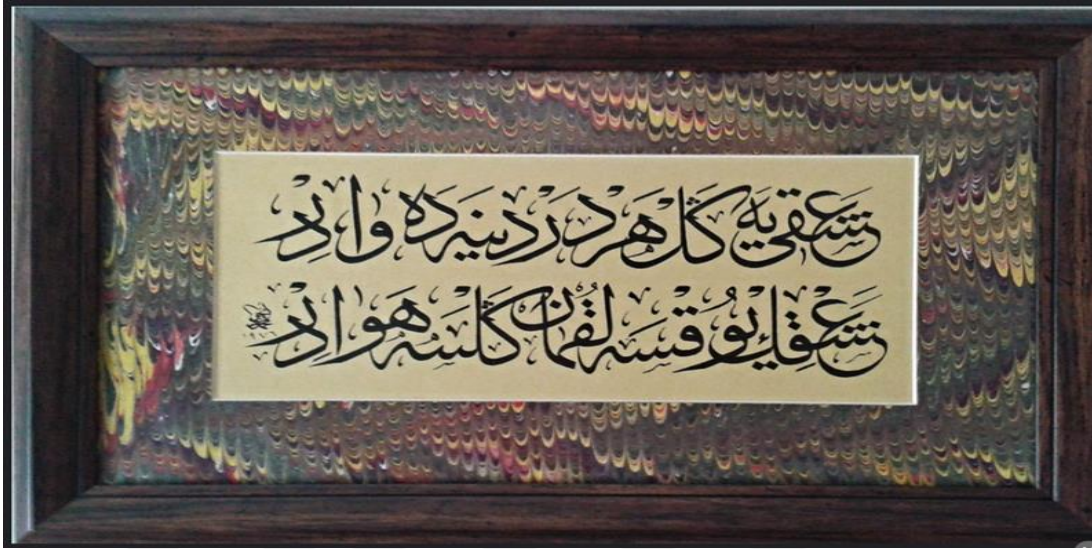 عشقی یه گل هر دردینه ده وادر
عشقك یوقسه لقمان گلسه هوادر